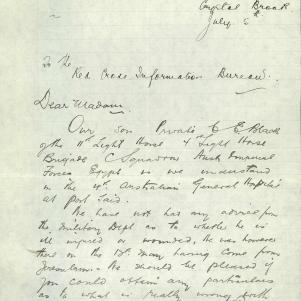 Crystal Brook
July 5th
To the
Red Cross Information Bureau.
Dear Madam.
Our son Private C E Black
of the 11th Light Horse 4 Light Horse
Brigade C Squadron Aust Imperial
Forces Egypt is we understand
in the 4th Australian General Hospital
at Port Said.
We have not has any advice from
the Military Dept as to whether he is
ill injured or wounded. He was however
there on the 18th May having come from
We should be pleased if
you could obtain any particulars
as to what is really wrong with